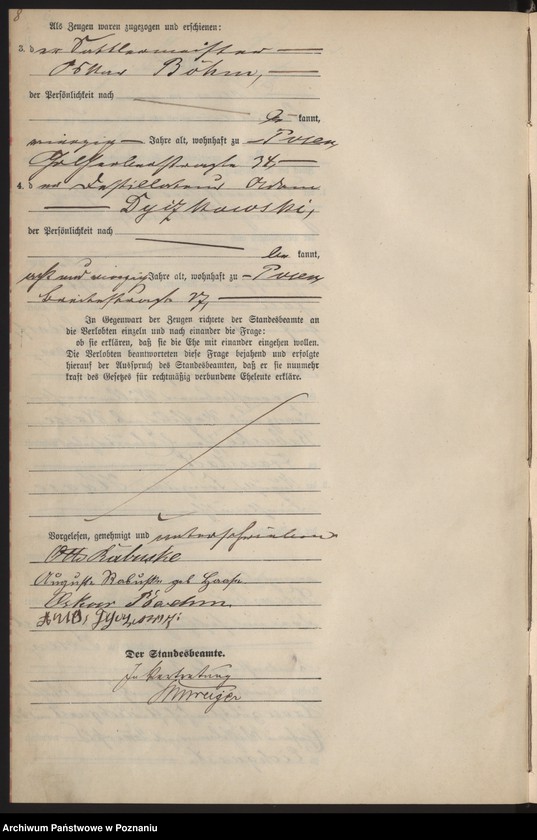 8
Als Zeugen waren zugezogen und erschienen:
3. der Sattlermeister
Oskar Böhm,
der Persönlichkeit nach
be kannt,
vierzig Jahre alt, wohnhaft zu Posen
34,
4. der Destillateur Adam
Dyizkowski,
der Persönlichkeit nach
be kannt,
acht und vierzig Jahre alt, wohnhaft zu Posen
Breitestraße 27,
In Gegenwart der Zeugen richtete der Standesbeamte an
die Verlobten einzeln und nach einander die Frage:
ob sie erklären, daß sie die Ehe mit einander eingehen wollen.
Die Verlobten beantworteten diese Frage bejahend und erfolgte
hierauf der Ausspruch des Standesbeamten, daß er sie nunmehr
kraft des Gesetzes für rechtmäßig verbundene Eheleute erkläre.
Vorgelesen, genehmigt und unterschrieben
Otto Kabuske
Auguste Kabuske geb Haase
Oskar Boehm
Der Standesbeamte.
In Vertretung
Archiwum Państwowe w Poznaniu